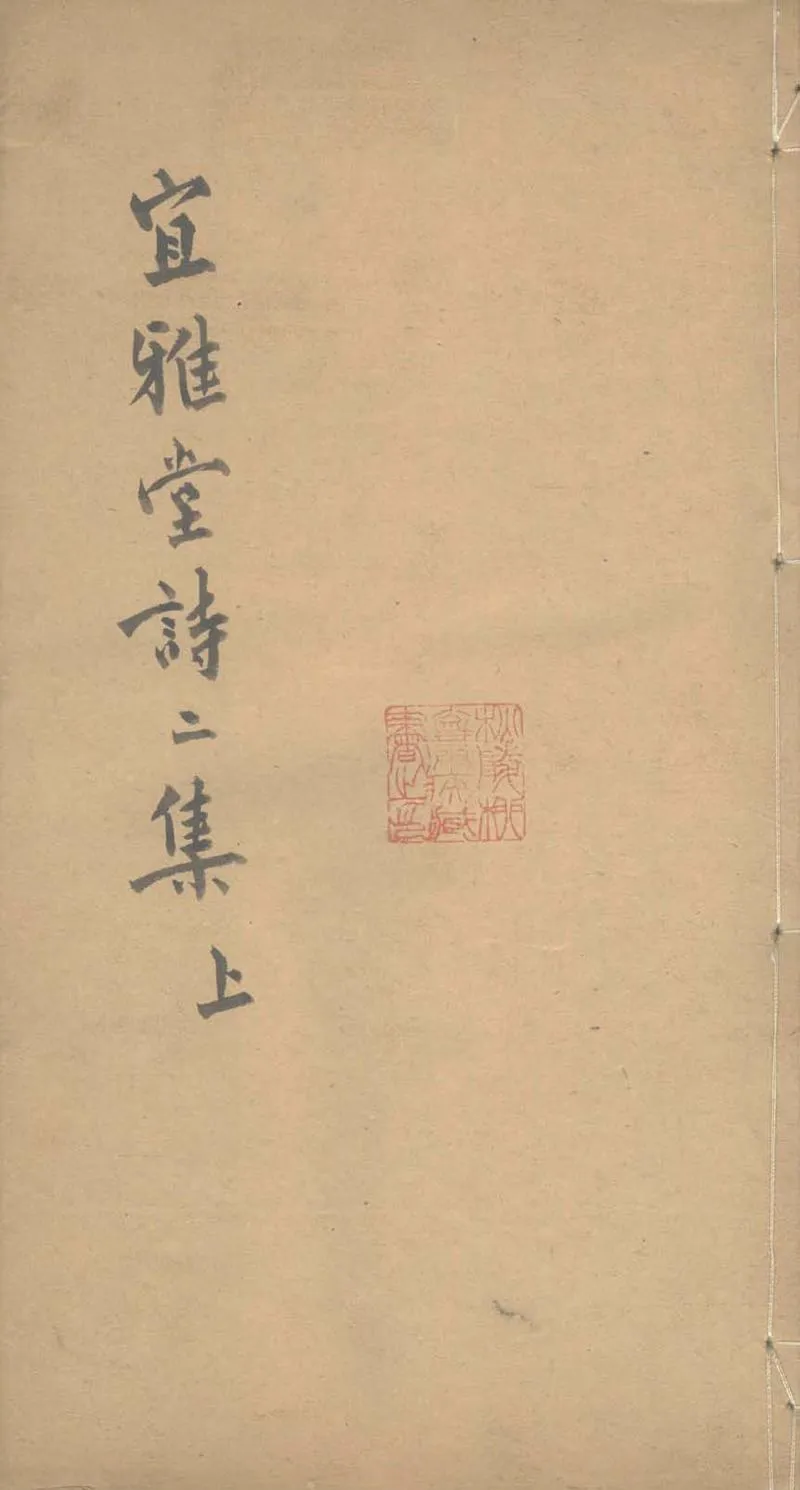 宜雅堂詩二集上